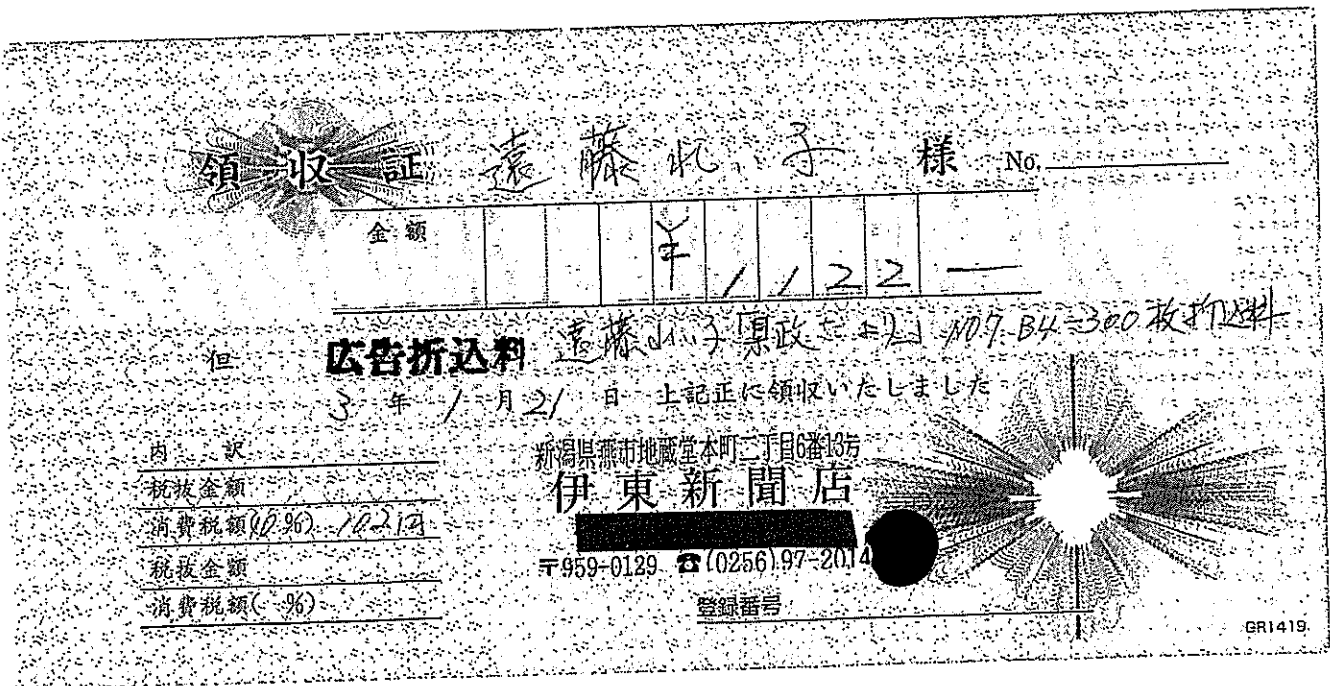 領収証 遠藤れい子 様 No.
金額 ¥1122―
但 広告折込料 遠藤れい子「県政だより」NO7.B4=300枚折込料
3年1月21日 上記正に領収いたしました
内訳
税抜金額
消費税額(10%) 102円
税抜金額
消費税額( %)
新潟県燕市地蔵堂本町二丁目6番13号
伊東新聞店
〒959-0129 ☎(0256)97-2014
登録番号
GR1419